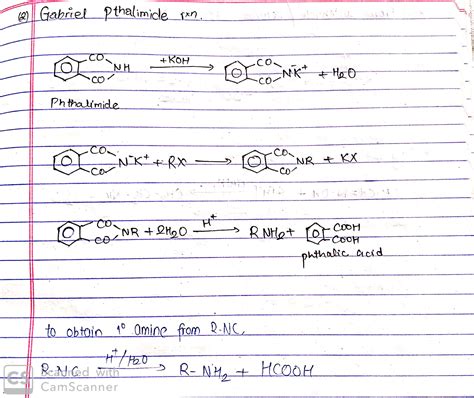 (2) Gabriel Pthalimide rxn.
CO CO NH +KOH → CO CO N⁻K⁺ + H₂O
Phthalimide
CO CO N⁻K⁺ + RX → CO CO NR + KX
CO CO NR + 2H₂O H⁺ → RNH₂ + COOH COOH
phthalic acid
to obtain 1° amine from R-NC,
R-NC H⁺/H₂O → R-NH₂ + HCOOH
CS Scanned with
CamScanner